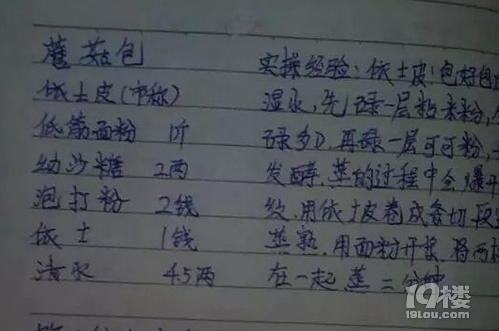 蘑菇包
实操经验：依士皮(包好包
依士皮(市称)
湿水,先碌一层粘米粉,
低筋面粉 1斤
碌多D,再碌一层可可粉,
幼沙糖 2两
发酵,蒸的过程中会爆开
泡打粉 2钱
纹,用依士皮卷成条切段
依士 1钱
蒸熟,用面粉开浆,将两
清水 4.5两
在一起,蒸二分钟
19楼
19lou.com